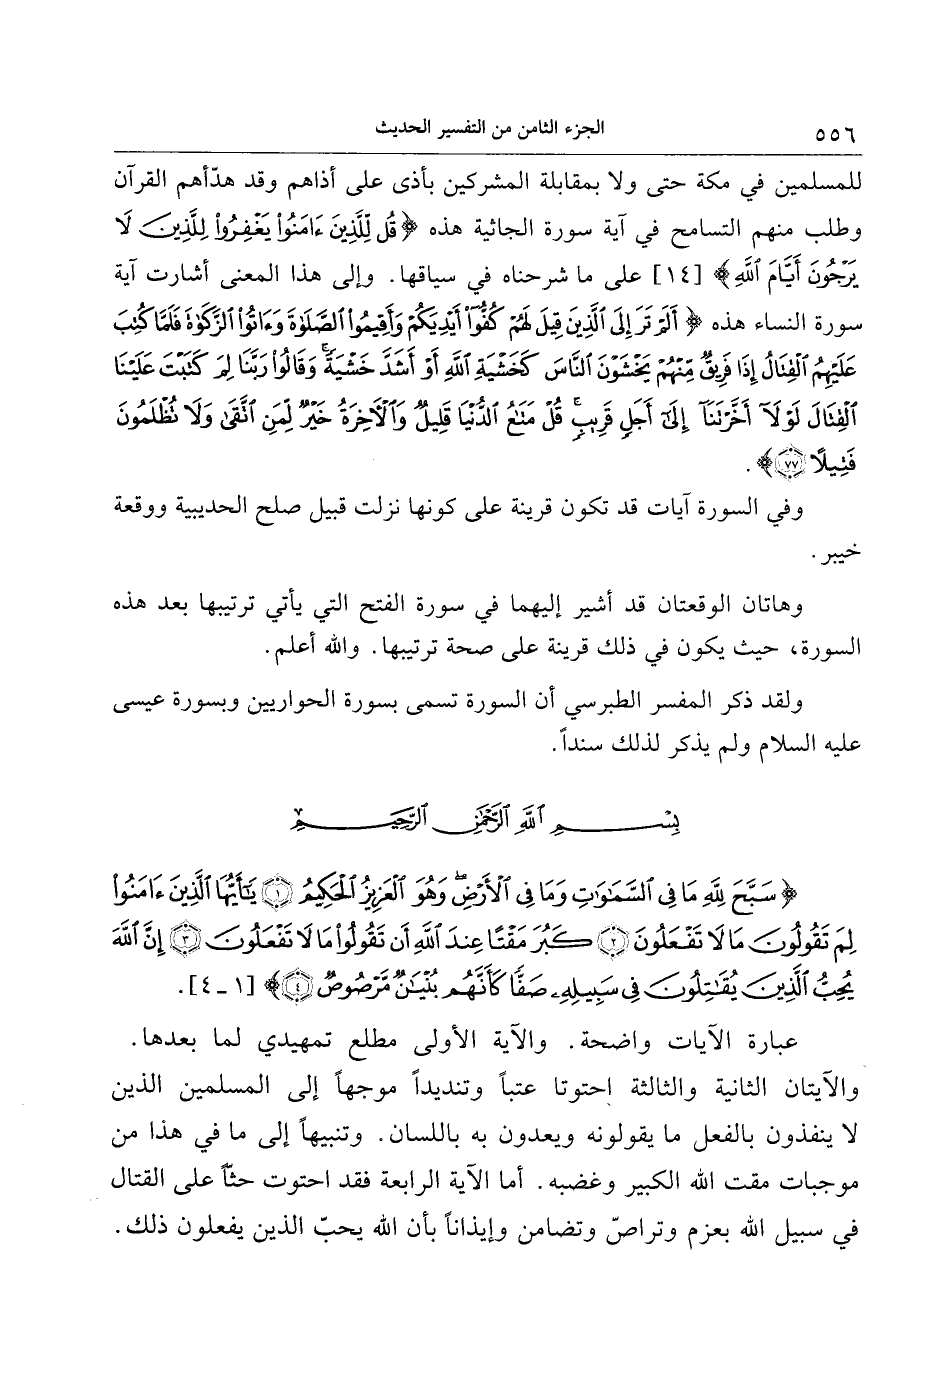 ٥٥٦ الجزء الثامن من التفسير الحديث
للمسلمين في مكة حتى ولا بمقابلة المشركين بأذى على أذاهم وقد هدّأهم القرآن
وطلب منهم التسامح في آية سورة الجاثية هذه ﴿قُل لِّلَّذِينَ ءَامَنُوا۟ يَغْفِرُوا۟ لِلَّذِينَ لَا
يَرْجُونَ أَيَّامَ ٱللَّهِ﴾ [١٤] على ما شرحناه في سياقها. وإلى هذا المعنى أشارت آية
سورة النساء هذه ﴿أَلَمْ تَرَ إِلَى ٱلَّذِينَ قِيلَ لَهُمْ كُفُّوٓا۟ أَيْدِيَكُمْ وَأَقِيمُوا۟ ٱلصَّلَوٰةَ وَءَاتُوا۟ ٱلزَّكَوٰةَ فَلَمَّا كُتِبَ
عَلَيْهِمُ ٱلْقِتَالُ إِذَا فَرِيقٌ مِّنْهُمْ يَخْشَوْنَ ٱلنَّاسَ كَخَشْيَةِ ٱللَّهِ أَوْ أَشَدَّ خَشْيَةً ۚ وَقَالُوا۟ رَبَّنَا لِمَ كَتَبْتَ عَلَيْنَا
ٱلْقِتَالَ لَوْلَآ أَخَّرْتَنَآ إِلَىٰٓ أَجَلٍ قَرِيبٍ ۗ قُلْ مَتَـٰعُ ٱلدُّنْيَا قَلِيلٌ وَٱلْـَٔاخِرَةُ خَيْرٌ لِّمَنِ ٱتَّقَىٰ وَلَا تُظْلَمُونَ
فَتِيلًا ٧٧﴾.
وفي السورة آيات قد تكون قرينة على كونها نزلت قبيل صلح الحديبية ووقعة
خيبر.
وهاتان الوقعتان قد أشير إليهما في سورة الفتح التي يأتي ترتيبها بعد هذه
السورة، حيث يكون في ذلك قرينة على صحة ترتيبها. والله أعلم.
ولقد ذكر المفسر الطبرسي أن السورة تسمى بسورة الحواريين وبسورة عيسى
عليه السلام ولم يذكر لذلك سنداً.
بِسْمِ ٱللَّهِ ٱلرَّحْمَـٰنِ ٱلرَّحِيمِ
﴿سَبَّحَ لِلَّهِ مَا فِى ٱلسَّمَـٰوَٰتِ وَمَا فِى ٱلْأَرْضِ ۖ وَهُوَ ٱلْعَزِيزُ ٱلْحَكِيمُ ١ يَـٰٓأَيُّهَا ٱلَّذِينَ ءَامَنُوا۟
لِمَ تَقُولُونَ مَا لَا تَفْعَلُونَ ٢ كَبُرَ مَقْتًا عِندَ ٱللَّهِ أَن تَقُولُوا۟ مَا لَا تَفْعَلُونَ ٣ إِنَّ ٱللَّهَ
يُحِبُّ ٱلَّذِينَ يُقَـٰتِلُونَ فِى سَبِيلِهِۦ صَفًّا كَأَنَّهُم بُنْيَـٰنٌ مَّرْصُوصٌ ٤﴾ [١ ـ ٤].
عبارة الآيات واضحة. والآية الأولى مطلع تمهيدي لما بعدها.
والآيتان الثانية والثالثة احتوتا عتباً وتنديداً موجهاً إلى المسلمين الذين
لا ينفذون بالفعل ما يقولونه ويعدون به باللسان. وتنبيهاً إلى ما في هذا من
موجبات مقت الله الكبير وغضبه. أما الآية الرابعة فقد احتوت حثّاً على القتال
في سبيل الله بعزم وتراصّ وتضامن وإيذاناً بأن الله يحبّ الذين يفعلون ذلك.